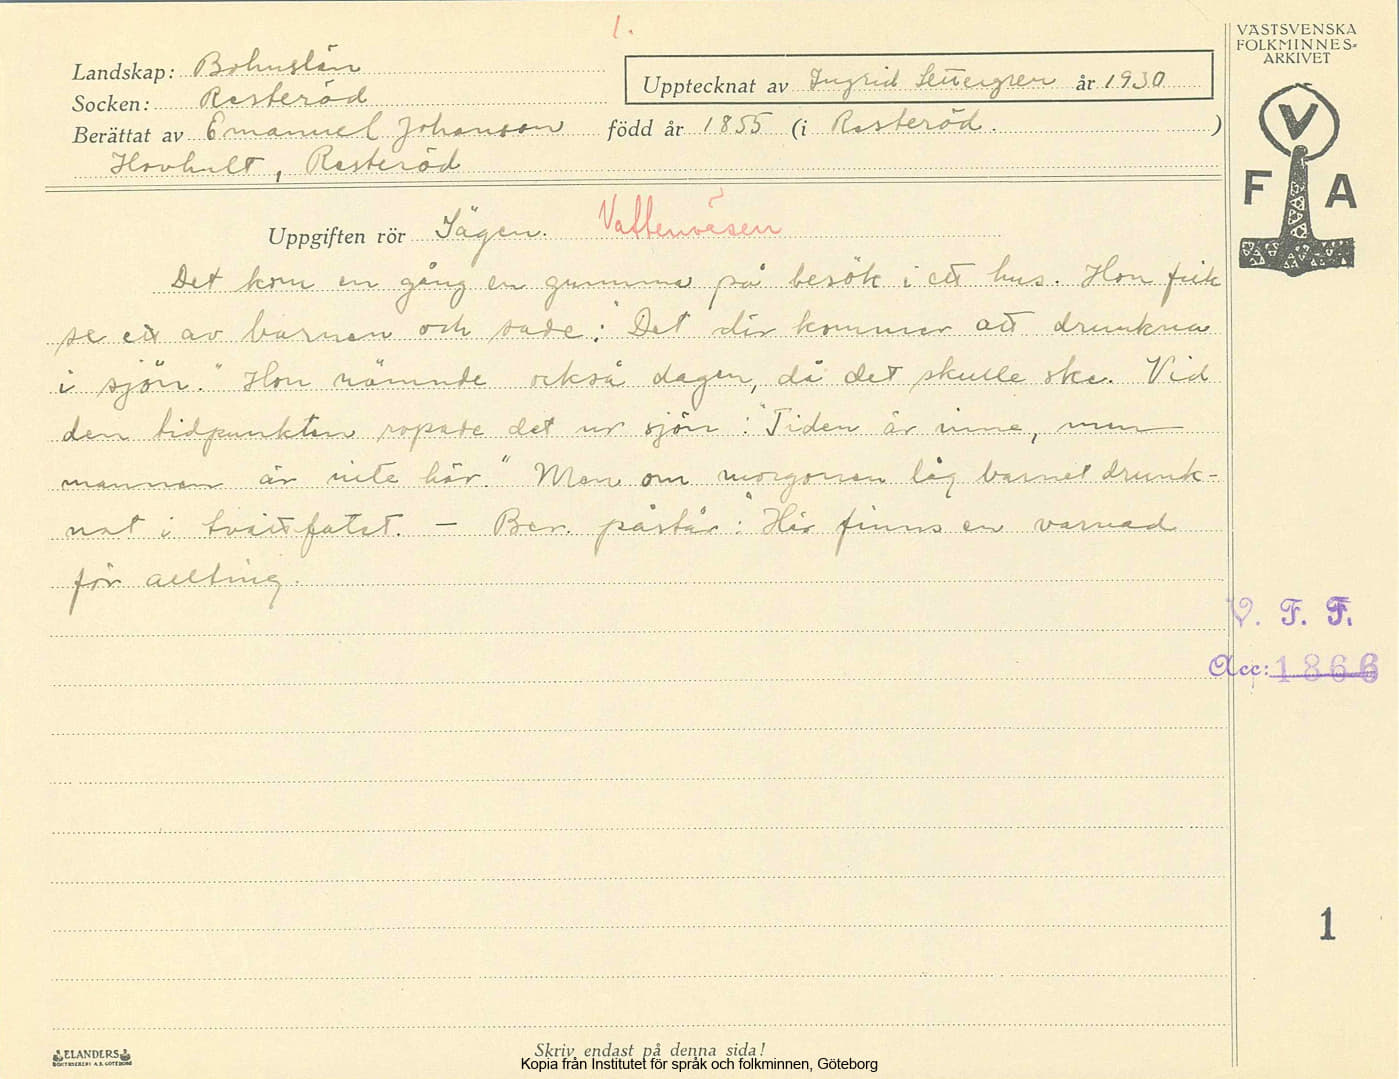 1.
VÄSTSVENSKA
FOLKMINNES-
ARKIVET
Landskap: Bohuslän
Upptecknat av Ingrid Settergren år 1930
Socken: Resteröd
Berättat av Emanuel Johanson född år 1855 (i Resteröd. )
Hovhult, Resteröd
V
F A
Uppgiften rör Sägen. Vattenväsen
Det kom en gång en gumma på besök i ett hus. Hon fick
se ett av barnen och sade: "Det där kommer att drunkna
i sjön." Hon nämnde också dagen, då det skulle ske. Vid
den tidpunkten ropade det ur sjön: "Tiden är inne, men
mannen är inte här." Men om morgonen låg barnet drunk-
nat i tvättfatet. — Ber. påstår: Här finns en varnad
för allting.
V. F. F.
Acc: 1866
1
ELANDERS
BOKTRYCKERI A.B. GÖTEBORG
Skriv endast på denna sida!
Kopia från Institutet för språk och folkminnen, Göteborg